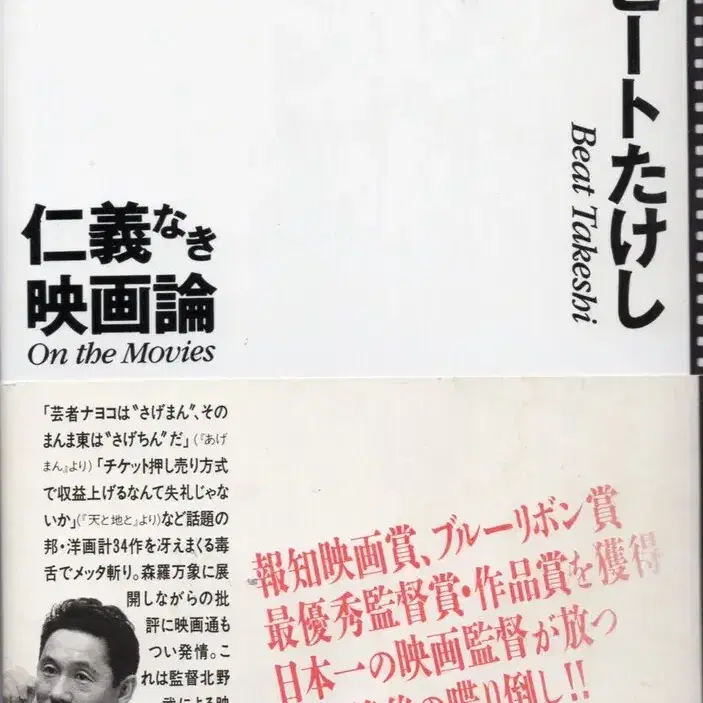 ビートたけし
Beat Takeshi
仁義なき
映画論
On the Movies
「芸者ナヨコは〝さげまん〟、その
まんま東は〝さげちん〟だ」(『あげ
まん』より)「チケット押し売り方式
で収益上げるなんて失礼じゃな
いか」(『天と地と』より)など話題の
邦・洋画計34作を冴えまくる毒
舌でメッタ斬り。森羅万象に展
開しながらの批
評に映画通も
つい発情。こ
れは監督北野
武による映
報知映画賞、ブルーリボン賞
最優秀監督賞・作品賞を獲得
日本一の映画監督が放つ
の喋り倒し!!